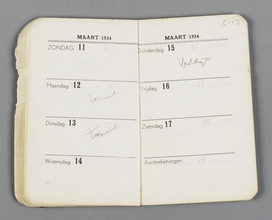 MAART 1934
ZONDAG 11
Maandag 12
Dinsdag 13
Woensdag 14
MAART 1934
Donderdag 15
Vrijdag 16
Zaterdag 17
Aanteekeningen